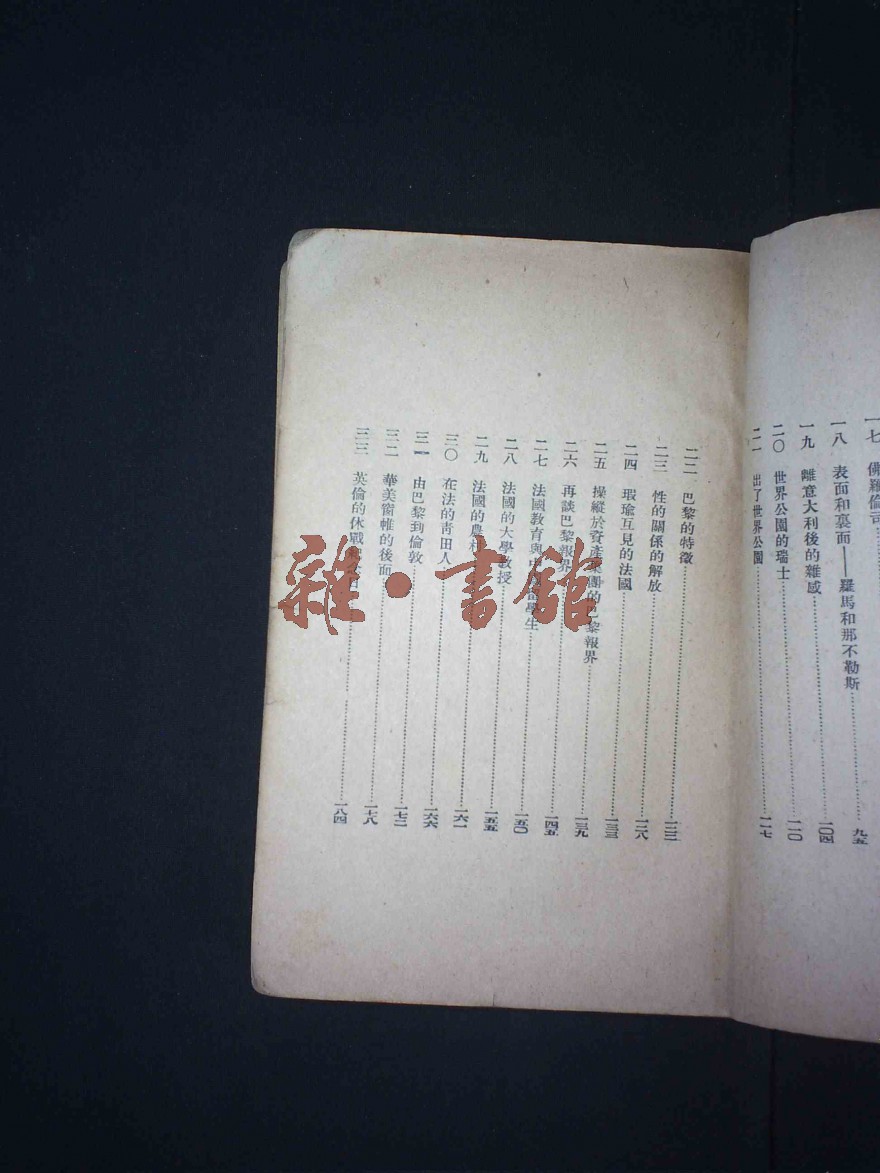 一七 佛羅倫司
一八 表面和裏面——羅馬和那不勒斯……九五
一九 離意大利後的雜感……一〇四
二〇 世界公園的瑞士……一一〇
二一 出了世界公園……一一七
二二 巴黎的特徵……一二二
二三 性的關係的解放……一二八
二四 瑕瑜互見的法國……一三三
二五 操縱於資產集團的巴黎報界……一三九
二六 再談巴黎報界……一四五
二七 法國教育與中國留學生……一五〇
二八 法國的大學教授……一五五
二九 法國的農村……一六一
三〇 在法的青田人……一六六
三一 由巴黎到倫敦……一七二
三二 華美窗帷的後面……一七八
三三 英倫的休戰紀念日……一八四
雜·書館